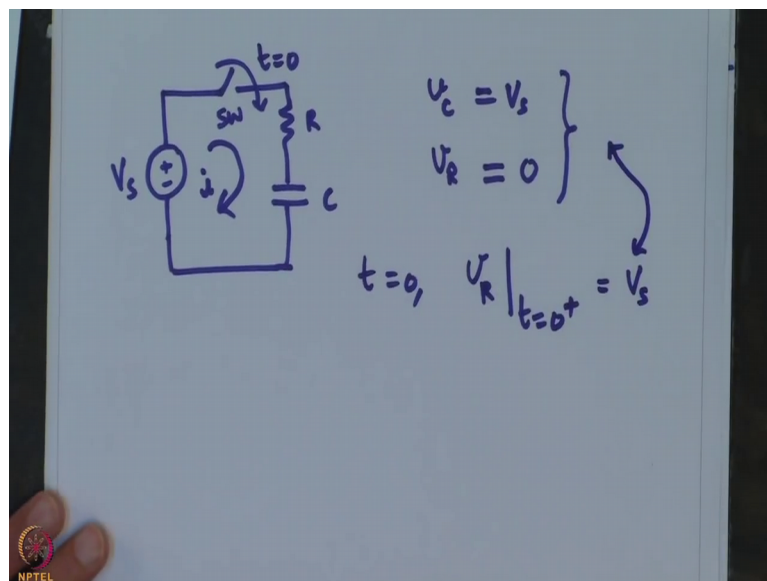 t=0
SW
R
Vs
i
C
v_C = Vs
v_R = 0
t=0, v_R |t=0+ = Vs
NPTEL